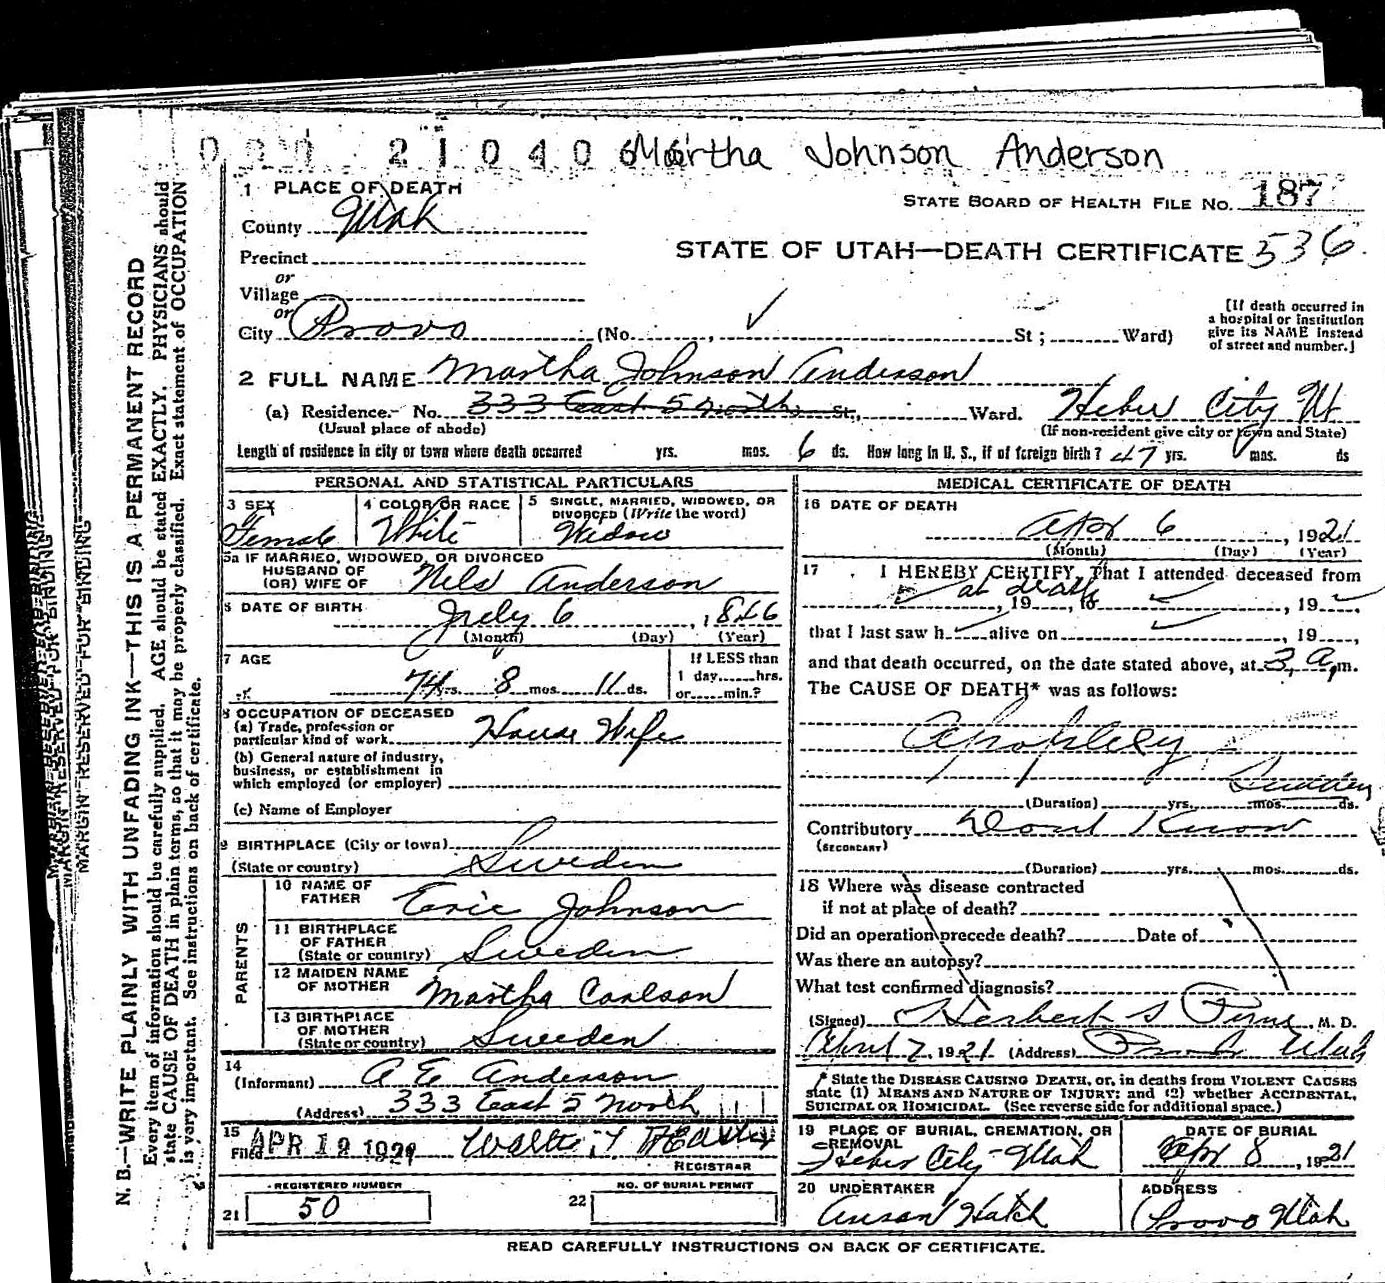 Martha Johnson Anderson
1 PLACE OF DEATH
STATE BOARD OF HEALTH FILE NO. 187
County Utah
STATE OF UTAH—DEATH CERTIFICATE 536
Precinct
or
Village
or
City Provo (No. , St ; Ward)
[If death occurred in
a hospital or institution
give its NAME instead
of street and number.]
2 FULL NAME Martha Johnson Anderson
(a) Residence.- No. 333 East 5 North St., Ward. Heber City Ut
(Usual place of abode) (If non-resident give city or town and State)
Length of residence in city or town where death occurred yrs. mos. 6 ds. How long in U. S., if of foreign birth? 47 yrs. mos. ds
PERSONAL AND STATISTICAL PARTICULARS
3 SEX
Female
4 COLOR OR RACE
White
5 SINGLE, MARRIED, WIDOWED, OR
DIVORCED (Write the word)
Widow
5a IF MARRIED, WIDOWED, OR DIVORCED
HUSBAND OF
(OR) WIFE OF Nils Anderson
6 DATE OF BIRTH July 6 , 1846
(Month) (Day) (Year)
7 AGE
74 yrs. 8 mos. 11 ds.
If LESS than
1 day......hrs.
or......min.?
8 OCCUPATION OF DECEASED
(a) Trade, profession or
particular kind of work House Wife
(b) General nature of industry,
business, or establishment in
which employed (or employer)
(c) Name of Employer
9 BIRTHPLACE (City or town)
(State or country) Sweden
PARENTS
10 NAME OF
FATHER Eric Johnson
11 BIRTHPLACE
OF FATHER
(State or country) Sweden
12 MAIDEN NAME
OF MOTHER Martha Carlson
13 BIRTHPLACE
OF MOTHER
(State or country) Sweden
14
(Informant) A E Anderson
(Address) 333 East 5 North
15
Filed APR 12 1921 Walter T
REGISTRAR
REGISTERED NUMBER
21 50
NO. OF BURIAL PERMIT
22
MEDICAL CERTIFICATE OF DEATH
16 DATE OF DEATH
Apr 6 , 1921
(Month) (Day) (Year)
17 I HEREBY CERTIFY, That I attended deceased from
at death , 19 , to , 19 ,
that I last saw h alive on , 19 ,
and that death occurred, on the date stated above, at 3 a.m.
The CAUSE OF DEATH* was as follows:
Apoplexy
Sudden
(Duration) yrs. mos. ds.
Contributory Dont Know
(SECONDARY)
(Duration) yrs. mos. ds.
18 Where was disease contracted
if not at place of death?
Did an operation precede death? Date of
Was there an autopsy?
What test confirmed diagnosis?
(Signed) Herbert S Pyne, M. D.
April 7, 1921 (Address) Provo Utah
* State the DISEASE CAUSING DEATH, or, in deaths from VIOLENT CAUSES
state (1) MEANS AND NATURE OF INJURY; and (2) whether ACCIDENTAL,
SUICIDAL OR HOMICIDAL. (See reverse side for additional space.)
19 PLACE OF BURIAL, CREMATION, OR
REMOVAL
Heber City-Utah
DATE OF BURIAL
Apr 8 , 1921
20 UNDERTAKER
Anson Hatch
ADDRESS
Provo Utah
READ CAREFULLY INSTRUCTIONS ON BACK OF CERTIFICATE.
MARGIN RESERVED FOR BINDING
N. B.—WRITE PLAINLY WITH UNFADING INK—THIS IS A PERMANENT RECORD
Every item of information should be carefully supplied. AGE should be stated EXACTLY. PHYSICIANS should
state CAUSE OF DEATH in plain terms, so that it may be properly classified. Exact statement of OCCUPATION
is very important. See instructions on back of certificate.